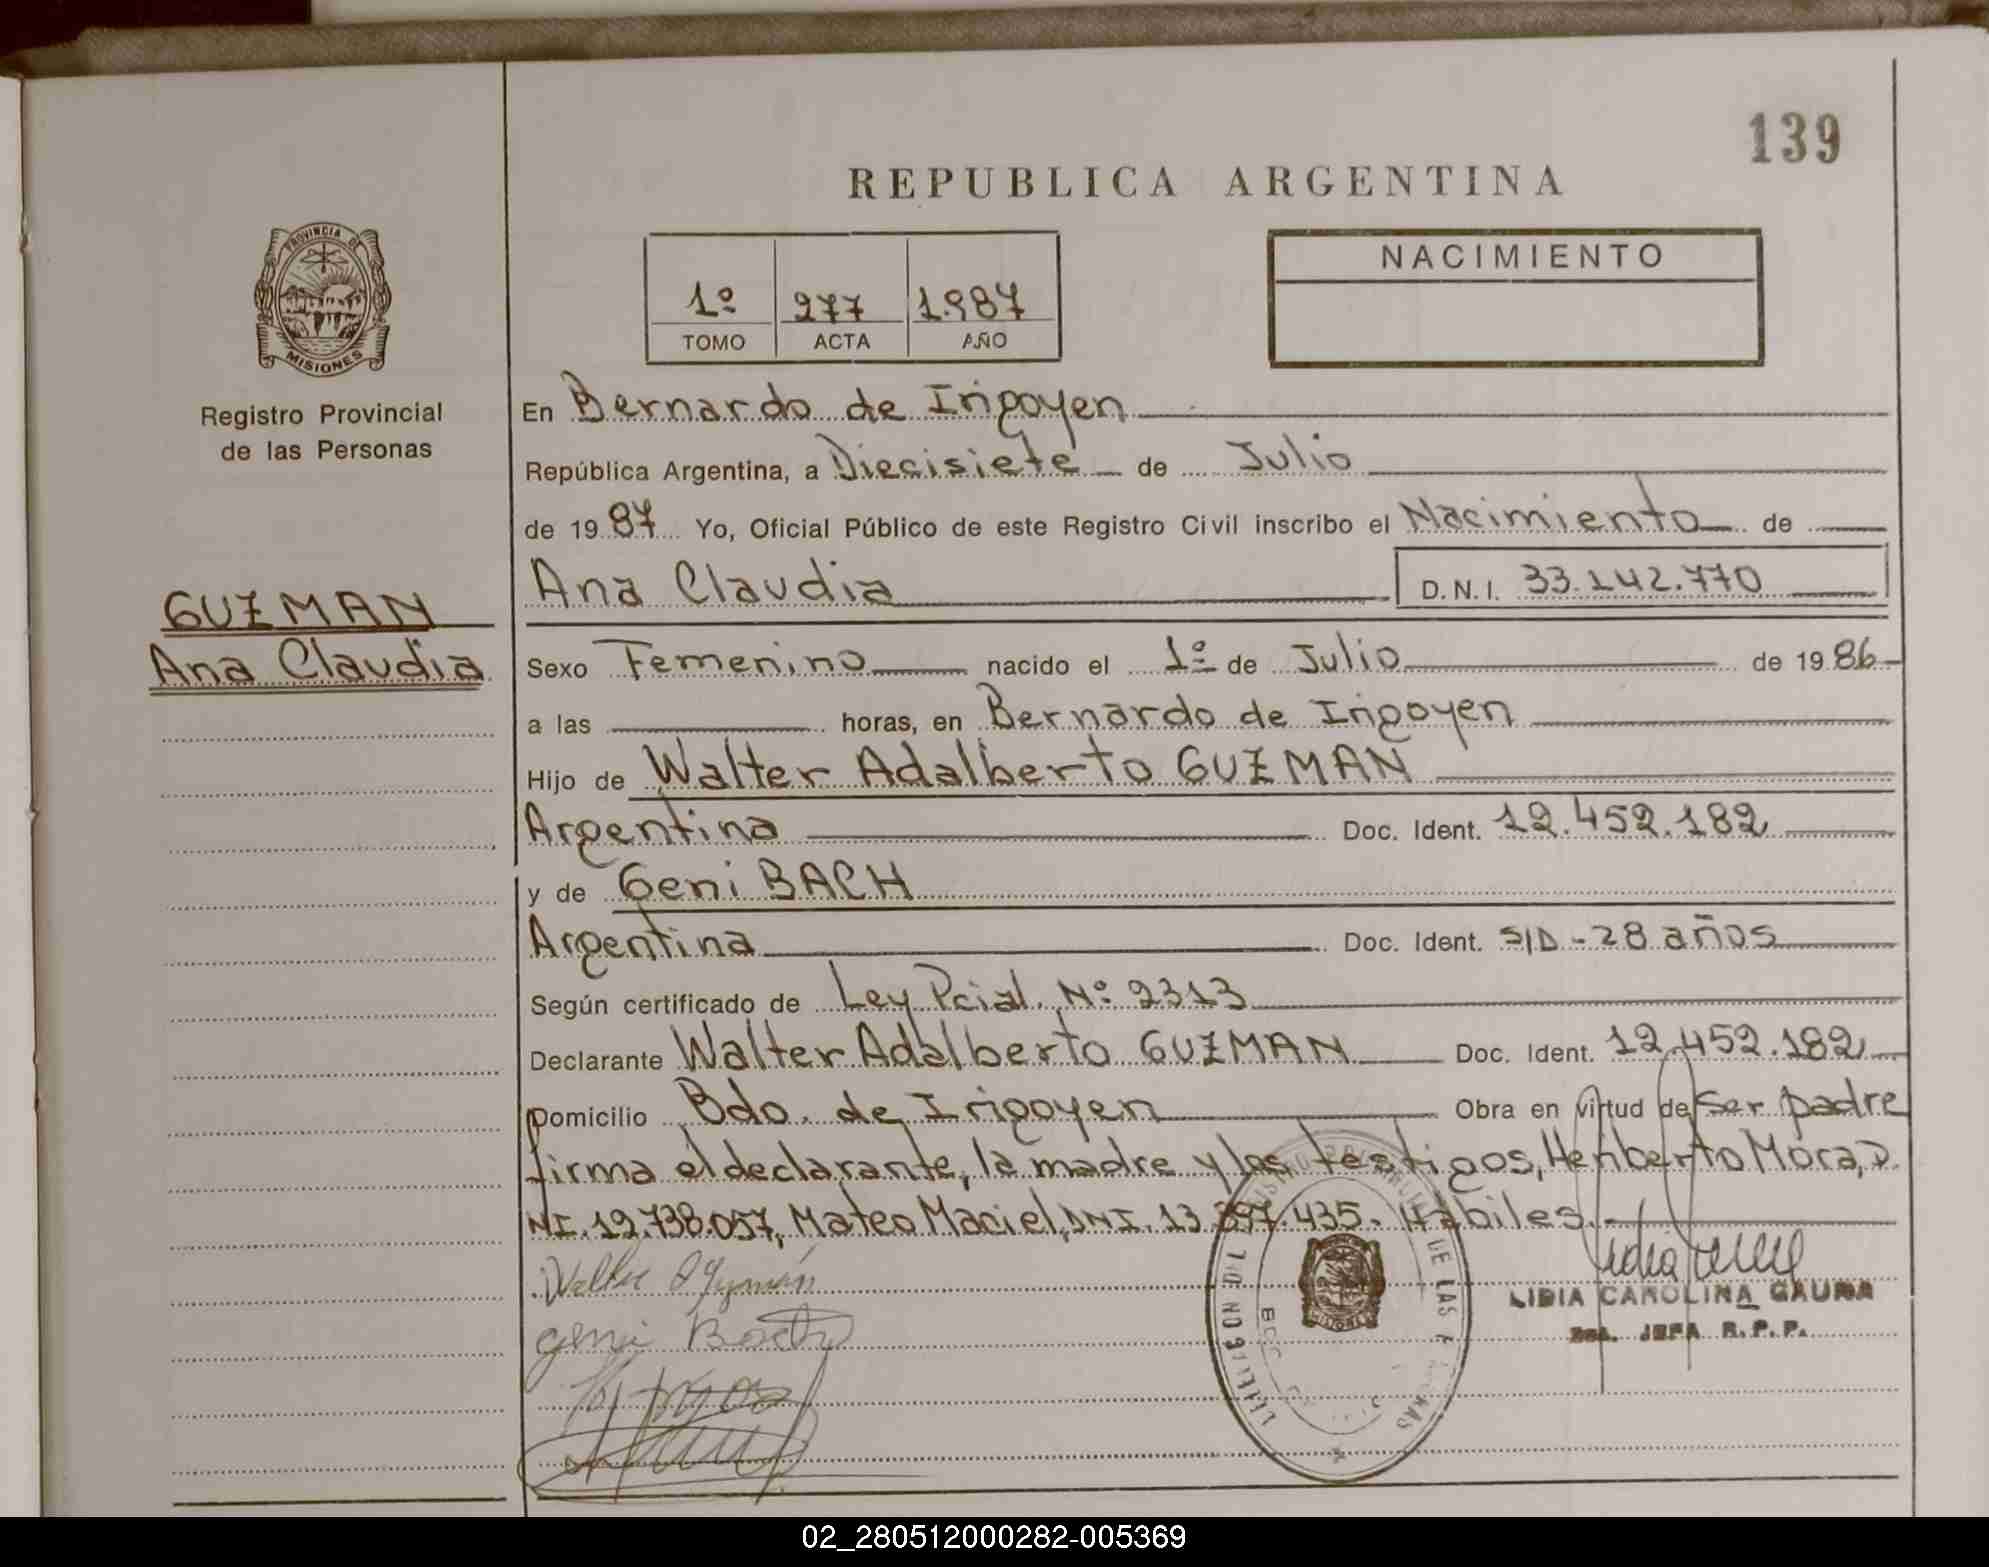 139
REPUBLICA ARGENTINA
PROVINCIA DE
MISIONES
Registro Provincial
de las Personas
1º 277 1.987
TOMO ACTA AÑO
NACIMIENTO
GUZMAN
Ana Claudia
En Bernardo de Irigoyen
República Argentina, a Diecisiete de Julio
de 1987 Yo, Oficial Público de este Registro Civil inscribo el Nacimiento de
Ana Claudia D.N.I. 33.142.770
Sexo Femenino nacido el 1º de Julio de 1986
a las horas, en Bernardo de Irigoyen
Hijo de Walter Adalberto GUZMAN
Argentina Doc. Ident. 12.452.182
y de Geni BACH
Argentina Doc. Ident. S/D - 28 años
Según certificado de Ley Pcial. Nº 2313
Declarante Walter Adalberto GUZMAN Doc. Ident. 12.452.182
Domicilio Bdo. de Irigoyen Obra en virtud de Ser padre
firma el declarante, la madre y los testigos, Heriberto Mora, D.
NI. 12.738.057, Mateo Maciel, DNI. 13.897.435. Hábiles.
Geni Bach
LIDIA CAROLINA GAUNA
JEFA R.P.P.
02_280512000282-005369